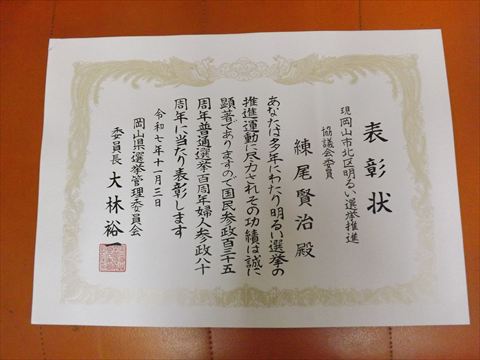 表彰状
現岡山市北区明るい選挙推進
協議会委員
練尾賢治殿
あなたは多年にわたり明るい選挙の
推進運動に尽力されその功績は誠に
顕著でありますので国民参政百三十五
周年普通選挙百周年婦人参政八十
周年に当たり表彰します
令和七年十一月三日
岡山県選挙管理委員会
委員長 大林裕一